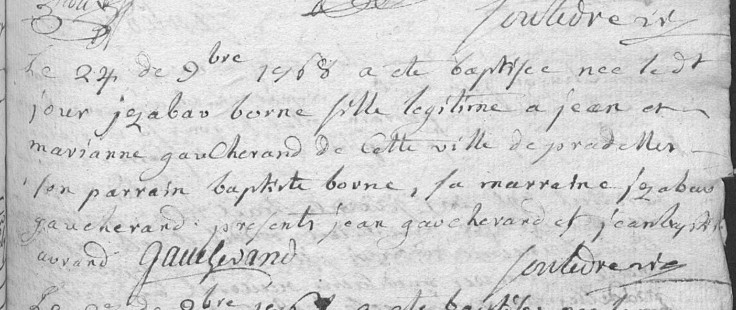 Le 24 de 9bre 1768 a ete baptisee nee led.t
jour jzabau borne fille legitime a jean et
marianne gaucherand de cette ville de pradelles
son parrain baptiste borne, sa marraine jzabau
gaucherand. presents jean gaucherand et jean baptiste
avrand Gaucherand
Le de 9bre 1768 a ete